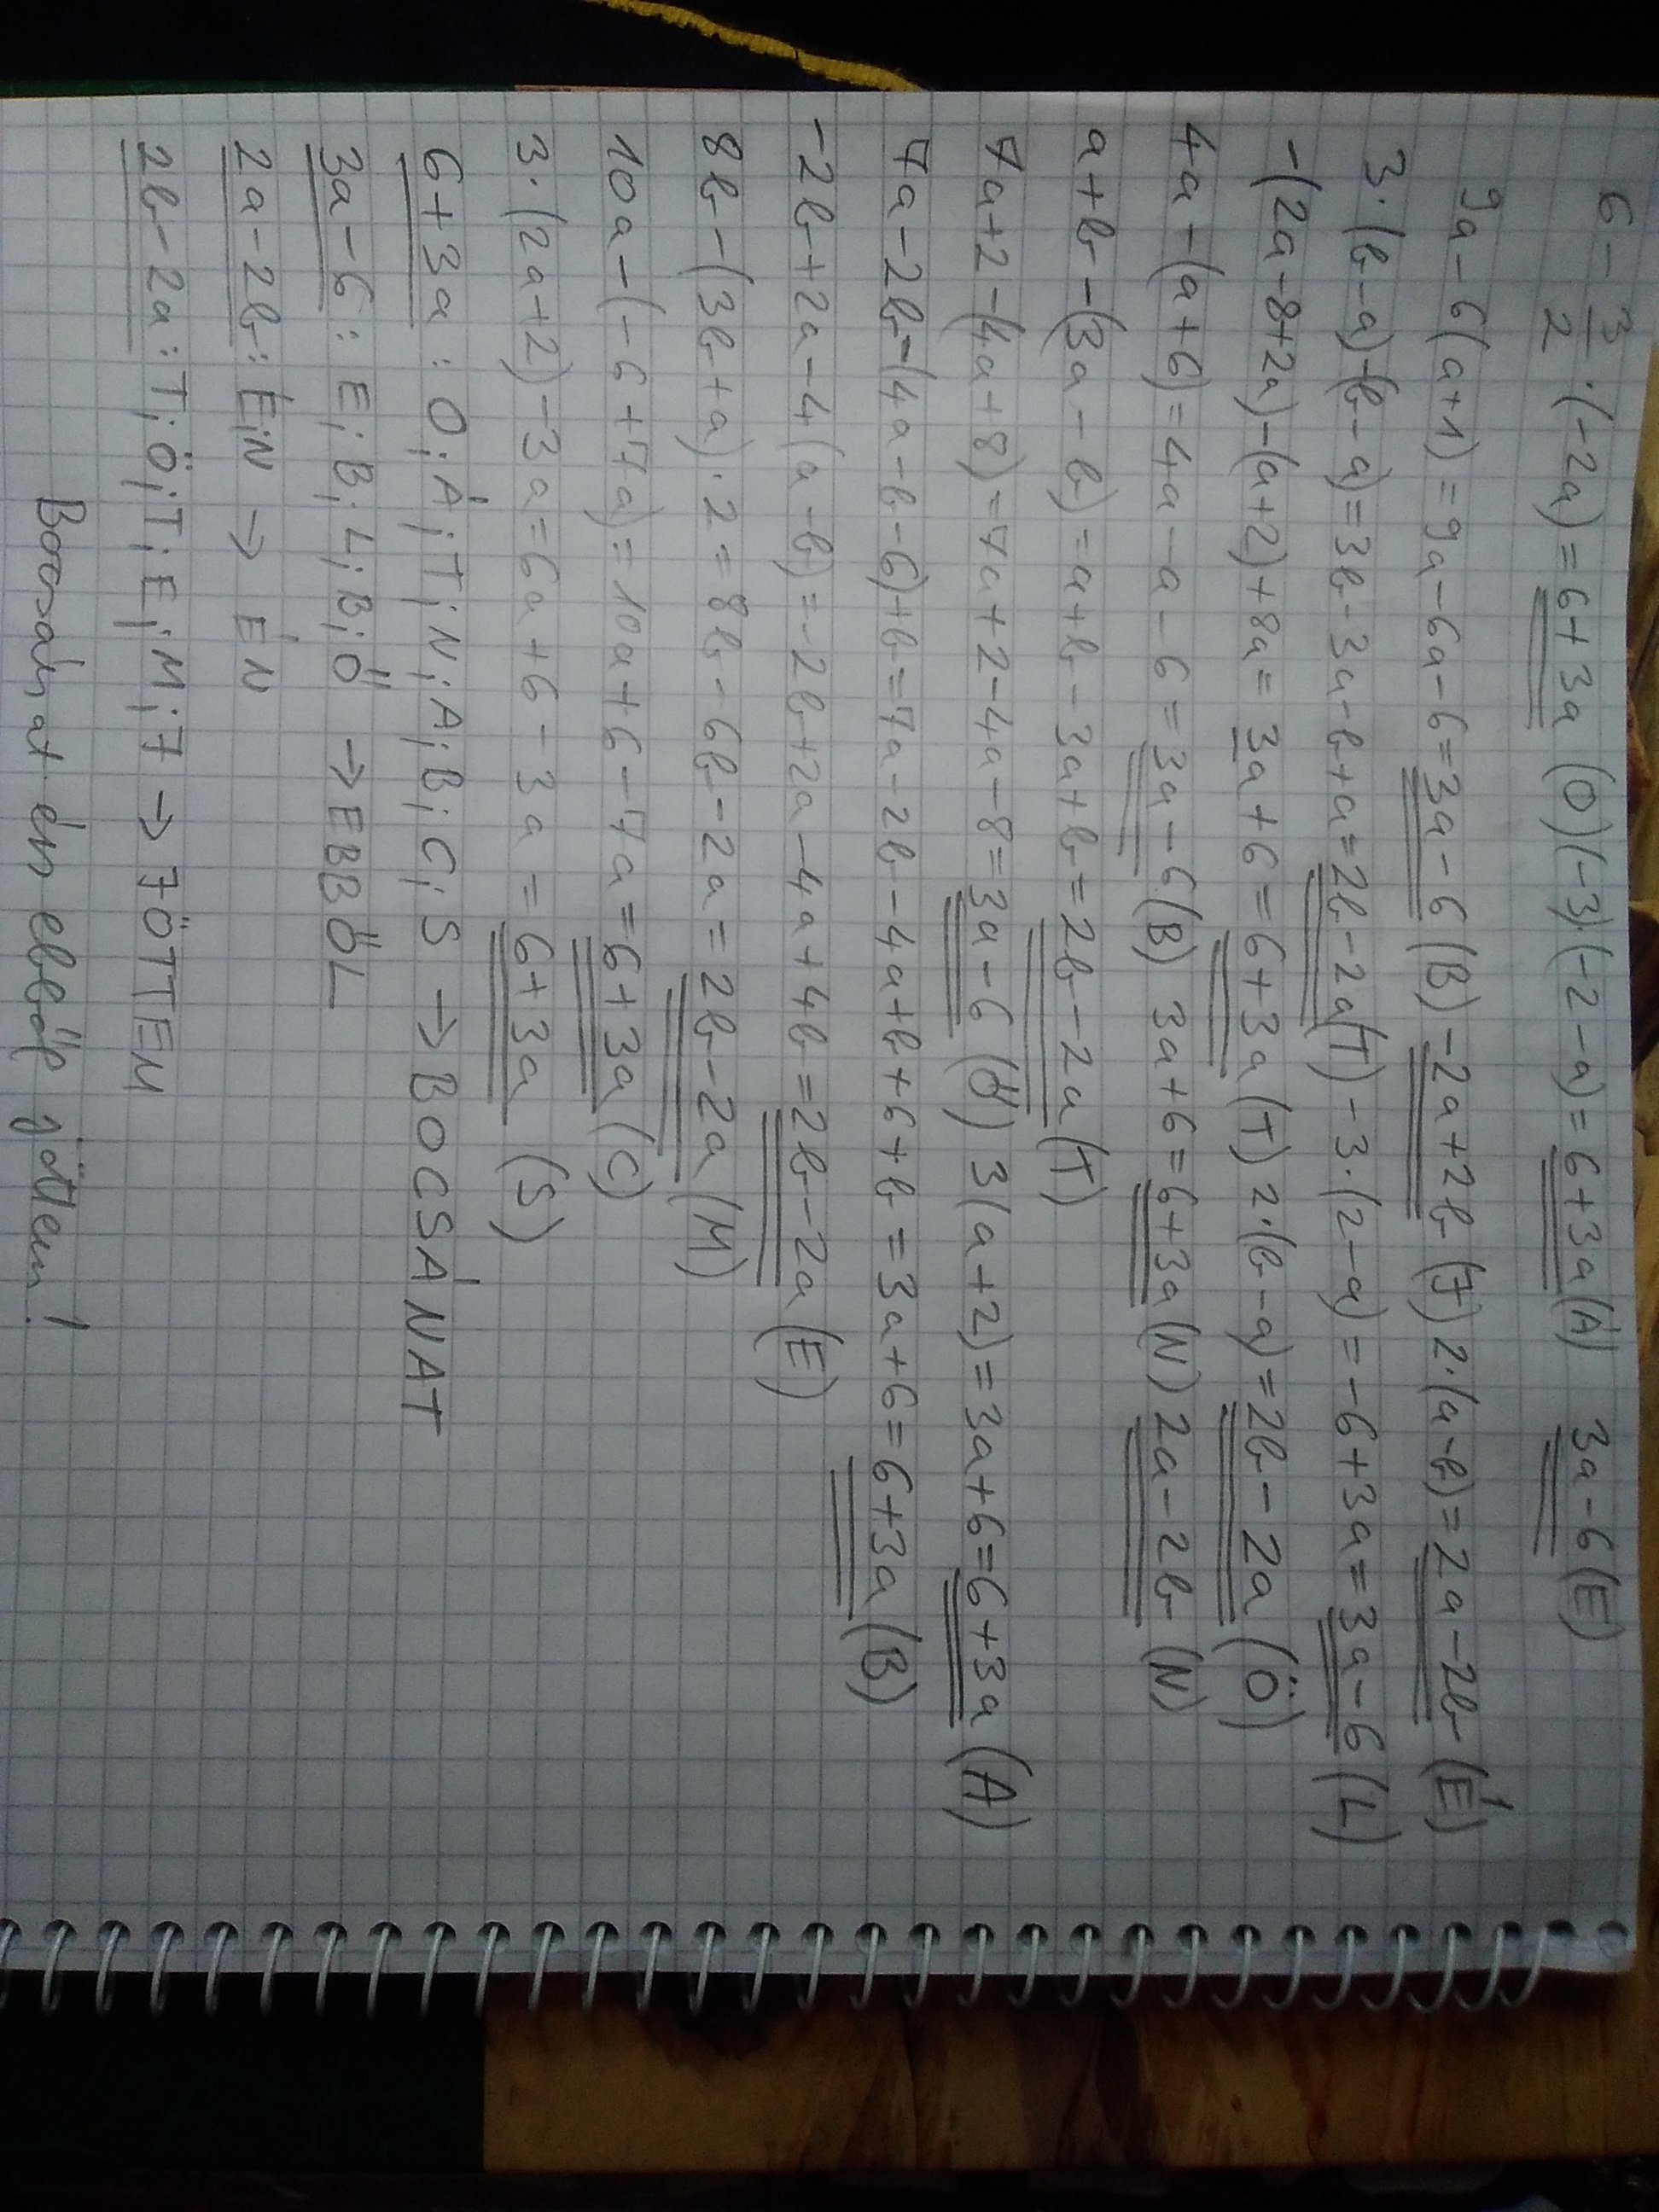 6 - 3/2 · (-2a) = 6+3a (O) (-3)·(-2-a) = 6+3a (Á) 3a-6 (E)
9a - 6(a+1) = 9a-6a-6 = 3a-6 (B) -2a+2b (J) 2·(a-b) = 2a-2b (É)
3·(b-a)-(b-a) = 3b-3a-b+a = 2b-2a (T) -3·(2-a) = -6+3a = 3a-6 (L)
-(2a-8+2a)-(a+2)+8a = 3a+6 = 6+3a (T) 2·(b-a) = 2b-2a (Ö)
4a-(a+6) = 4a-a-6 = 3a-6 (B) 3a+6 = 6+3a (N) 2a-2b (N)
a+b-(3a-b) = a+b-3a+b = 2b-2a (T)
7a+2-(4a+8) = 7a+2-4a-8 = 3a-6 (Ő) 3(a+2) = 3a+6 = 6+3a (A)
7a-2b-(4a-b-6)+b = 7a-2b-4a+b+6+b = 3a+6 = 6+3a (B)
-2b+2a-4(a-b) = -2b+2a-4a+4b = 2b-2a (E)
8b-(3b+a)·2 = 8b-6b-2a = 2b-2a (M)
10a-(-6+7a) = 10a+6-7a = 6+3a (C)
3·(2a+2)-3a = 6a+6-3a = 6+3a (S)
6+3a: O; Á; T; N; A; B; C; S → BOCSÁNAT
3a-6: E; B; L; B; Ő → EBBŐL
2a-2b: É; N → ÉN
2b-2a: T; Ö; T; E; M; J → JÖTTEM
Bocsánat én ebből jöttem!